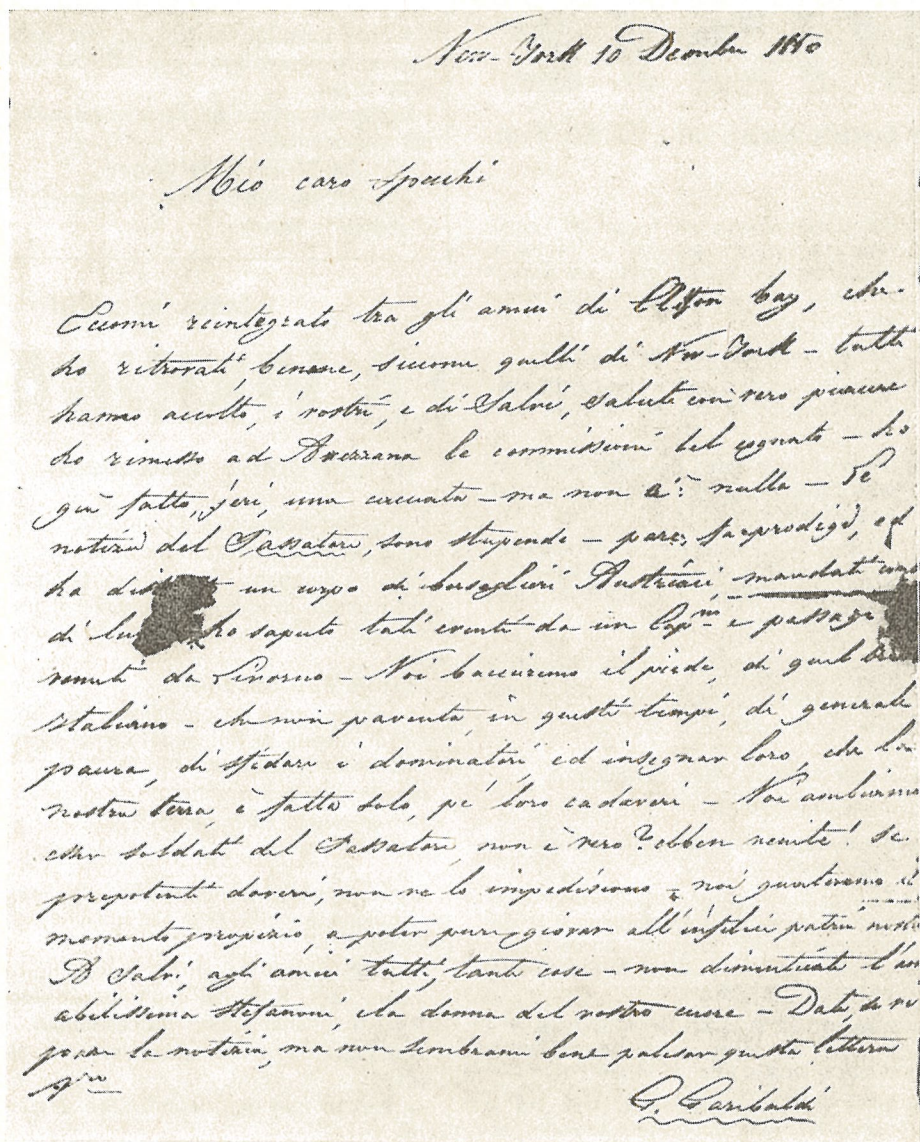 New-York 10 Dcembre 1850
Mio caro Specchi
Eccomi reintegrato tra gli amici di Clifton bay, che
ho ritrovati, benone, siccome quelli di New-York - tutti
hanno accolto, i vostri, e di Salvi, saluti con vero piacere
ho rimesso ad Avezzana le commissioni del cognato - ho
già fatto, jeri, una - ma non nulla - Le
notizie del Passatore, sono stupende - pare, fa prodigi, ed
ha un corpo di bersaglieri Austriaci, mandati
di ho saputo tali eventi da un Cap.no e
venuti da Livorno - Noi bacciremo il piede, di quel
italiano - che non paventa, in questi tempi, di generale
paura, di sfidare i dominatori, ed insegnar loro, che la
nostra terra, è fatta solo, pe' loro cadaveri - Noi
esser soldati del Passatore, non è vero? ebben venite! se
prepotenti doveri, non ve lo impediscono - noi
momento propizio, a poter pure giovar all'infelice patria
A Salvi, agli amici tutti, tante cose - non dimenticate l'am
abilissima Stefanoni, e la donna del vostro cuore - Date, se vi
piace la notizia, ma non sembrami bene palesar questa lettera
G. Garibaldi